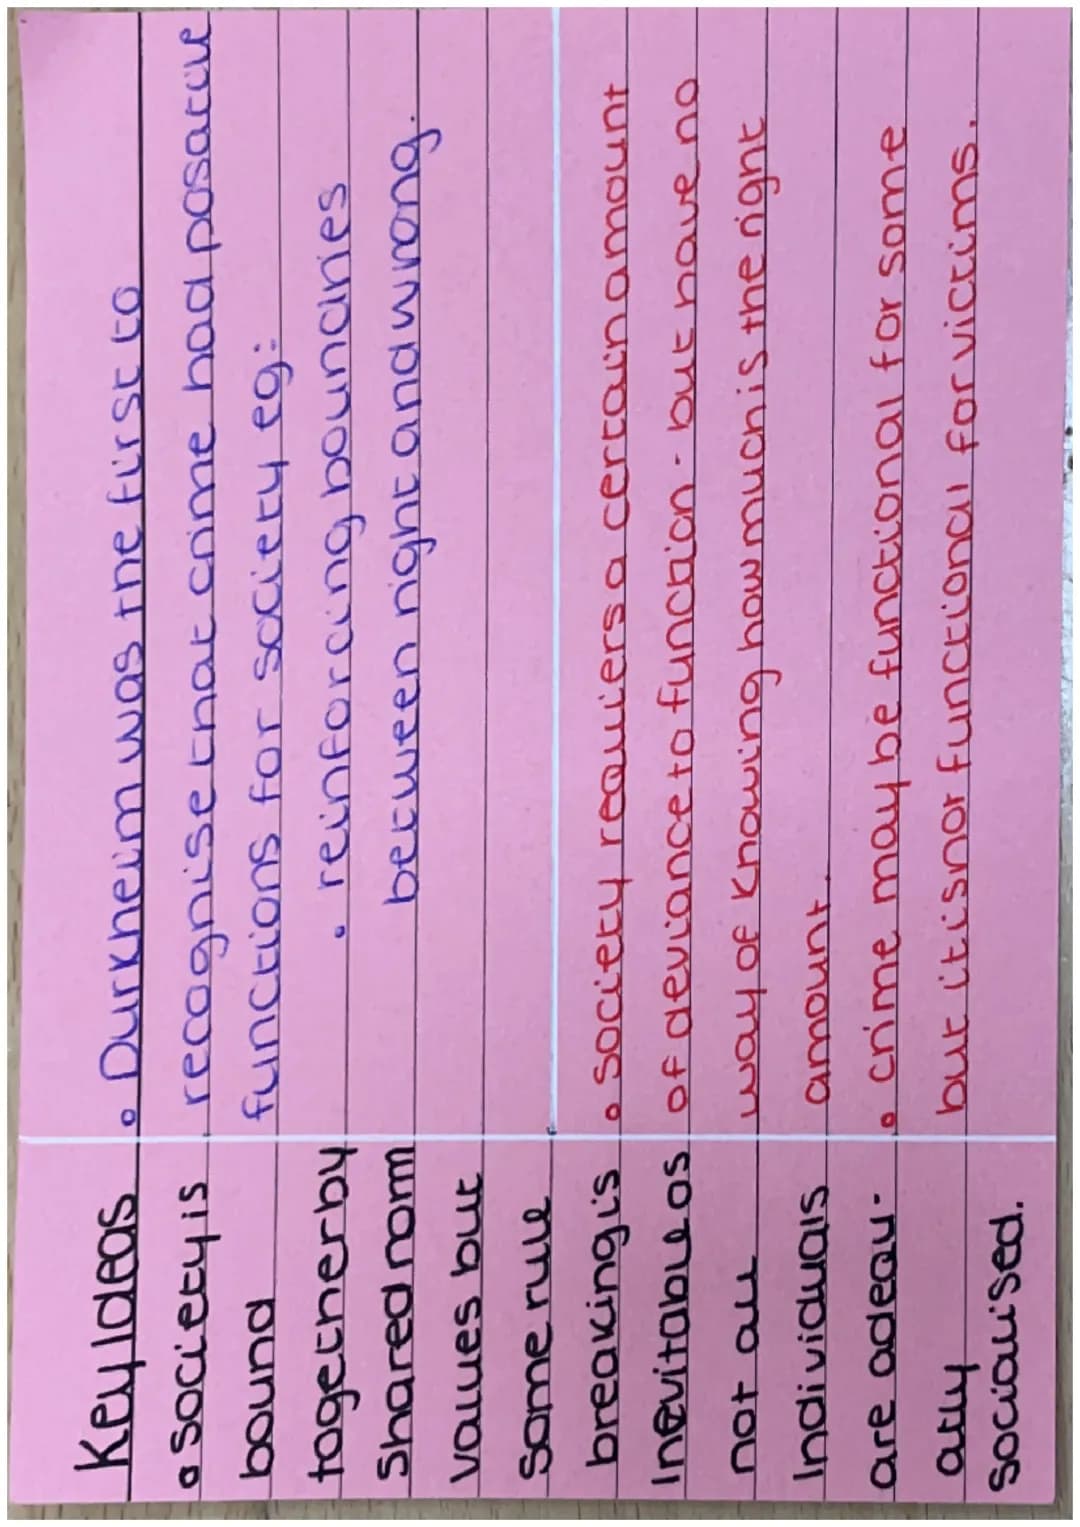 Key Ideas
• society is
bound
together by
Shared norm
values but
Some rule
breaking is
Inevitable as
not all
Individuals
are adequ-
atly
socialised.
• Durkheim was the first to
recognise that crime had posative
functions for society eg:
• reinforcing boundries
between right and wrong.
• society requiers a certain amount
of deviance to function - but have no
way of knowing how much is the right
amount.
• crime may be functional for some
but it isnor functional for victims.